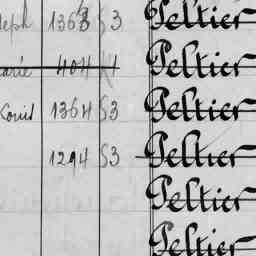 eph 1363 S3 Peltier
arie 404 X1 Peltier
Louis 1364 S3 Peltier
1294 S3 Peltier
Peltier
Peltier